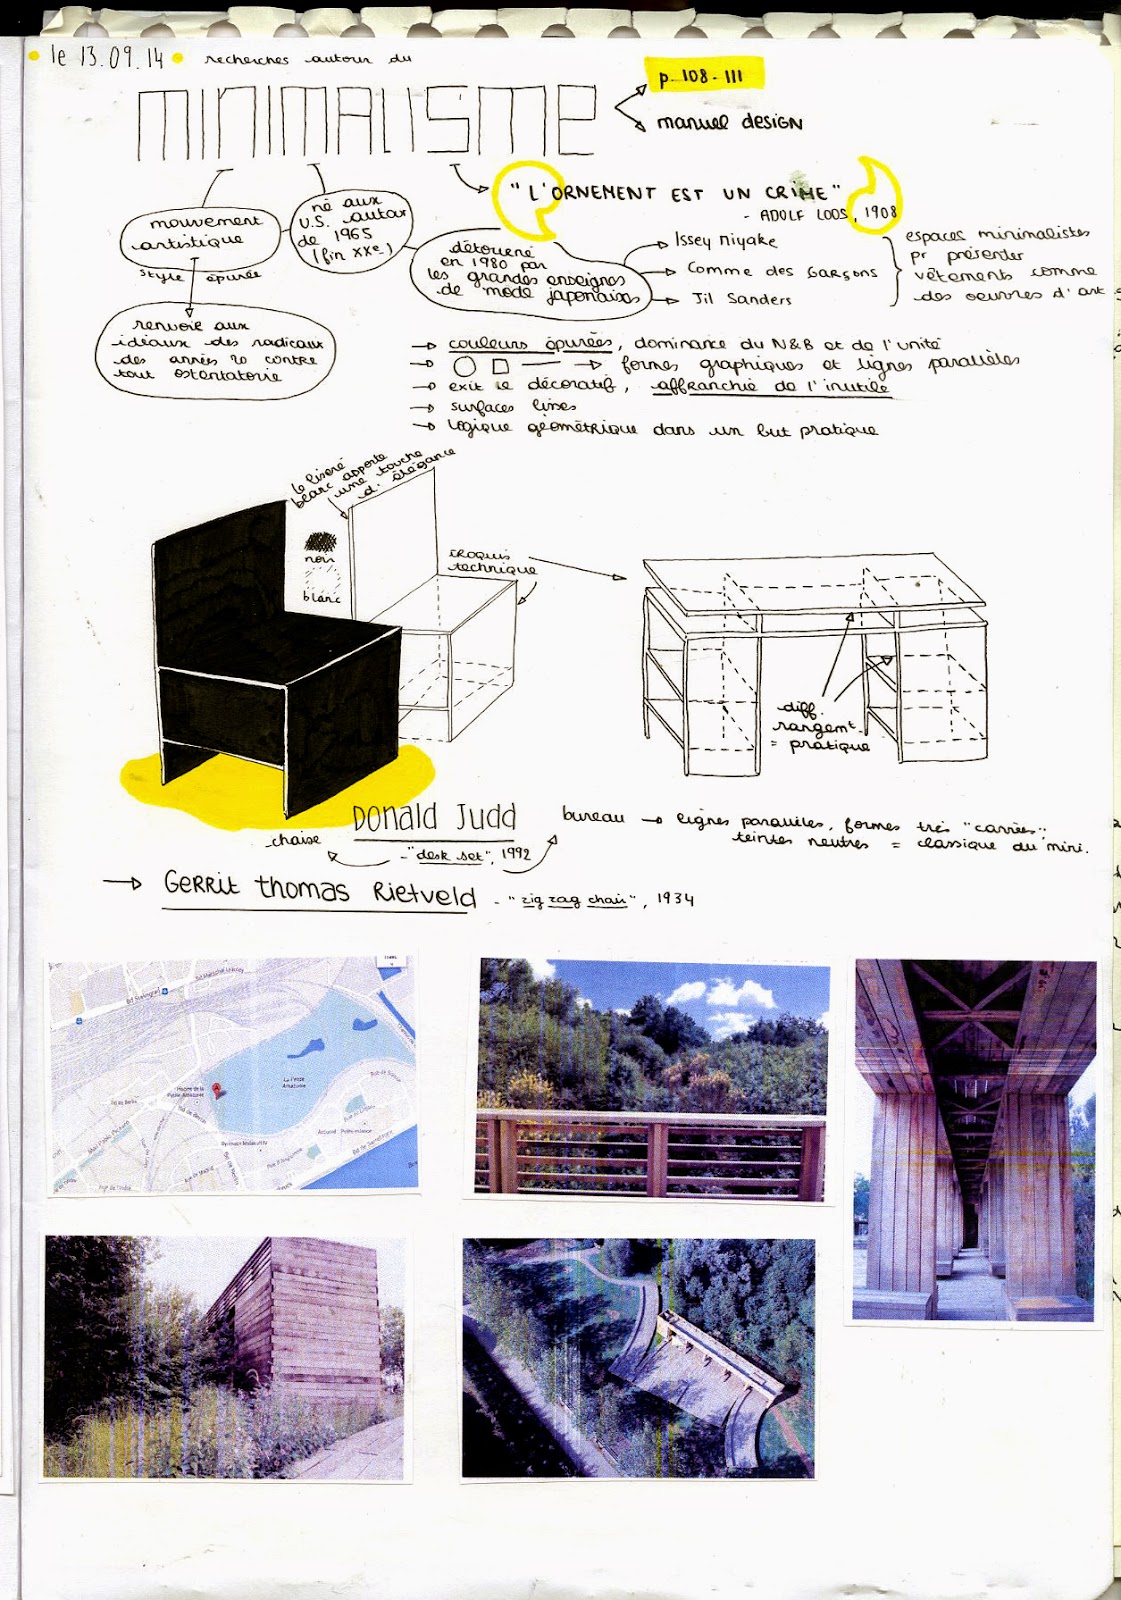 le 13.09.14 recherches autour du
MINIMALISME
p. 108-111
manuel design
"L'ORNEMENT EST UN CRIME"
- ADOLF LOOS, 1908
mouvement
artistique
né aux
U.S. autour
de 1965
(fin XXe)
style épuré
renvoie aux
idéaux des radicaux
des années 20 contre
tout ostentatoire
détourné
en 1980 par
les grandes enseignes
de mode japonaises
Issey Miyake
Comme des Garçons
Jil Sanders
espaces minimalistes
pr présenter
vêtements comme
des oeuvres d'art
→ couleurs épurées, dominance du N&B et de l'unité
→ formes graphiques et lignes parallèles
→ exit le décoratif, affranchié de l'inutile
→ surfaces lisses
→ logique géométrique dans un but pratique
le liseré
blanc apporte
une touche
d'élégance
noir
blanc
croquis
technique
diff.
rangemt.
= pratique
DONALD JUDD
chaise
- "desk set", 1992
bureau → lignes parallèles, formes très "carrées",
teintes neutres = classique du mini.
→ GERRIT THOMAS RIETVELD - "zig zag chair", 1934
Bd Stalingrad
La Petite
Amazonie
Bd de Berlin
Mail Pablo Picasso
Rue de Madrid